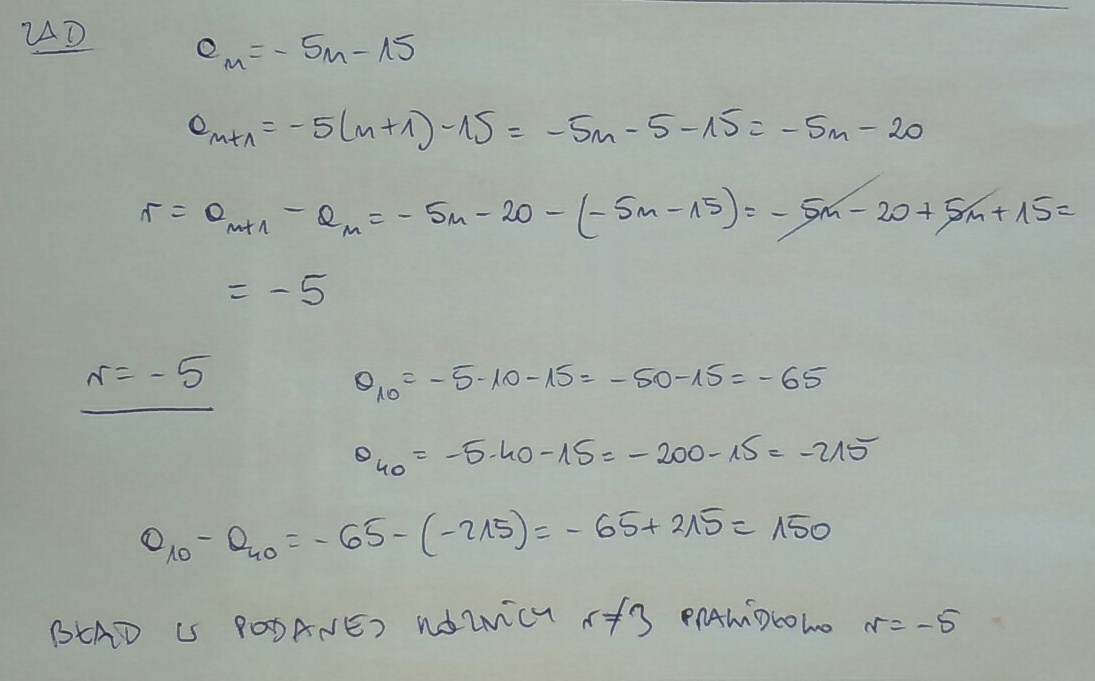 ZAD
a_n = -5n - 15
a_{n+1} = -5(n+1) - 15 = -5n - 5 - 15 = -5n - 20
r = a_{n+1} - a_n = -5n - 20 - (-5n - 15) = -5n - 20 + 5n + 15 =
= -5
r = -5
a_{10} = -5·10 - 15 = -50 - 15 = -65
a_{40} = -5·40 - 15 = -200 - 15 = -215
a_{10} - a_{40} = -65 - (-215) = -65 + 215 = 150
BŁĄD W PODANEJ RÓŻNICY r≠3 PRAWIDŁOWO r = -5